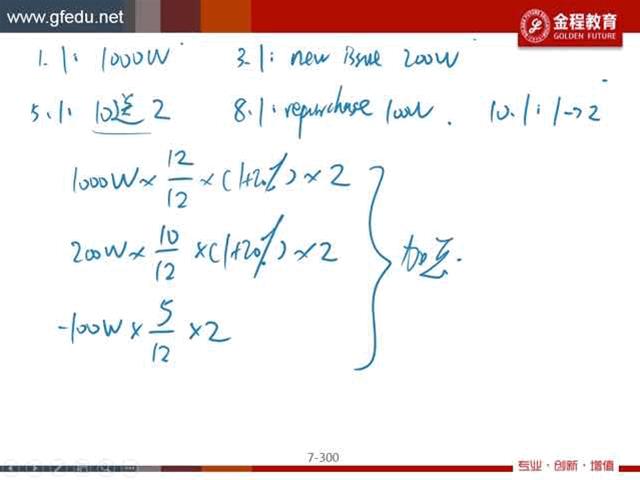 www.gfedu.net
金程教育
GOLDEN FUTURE
1.1: 1000W 3.1: new issue 200W
5.1: 10送2 8.1: repurchase 100W. 10.1: 1→2
1000W × 12/12 × (1+20%) × 2
200W × 10/12 × (1+20%) × 2
-100W × 5/12 × 2
加总.
7-300
专业·创新·增值